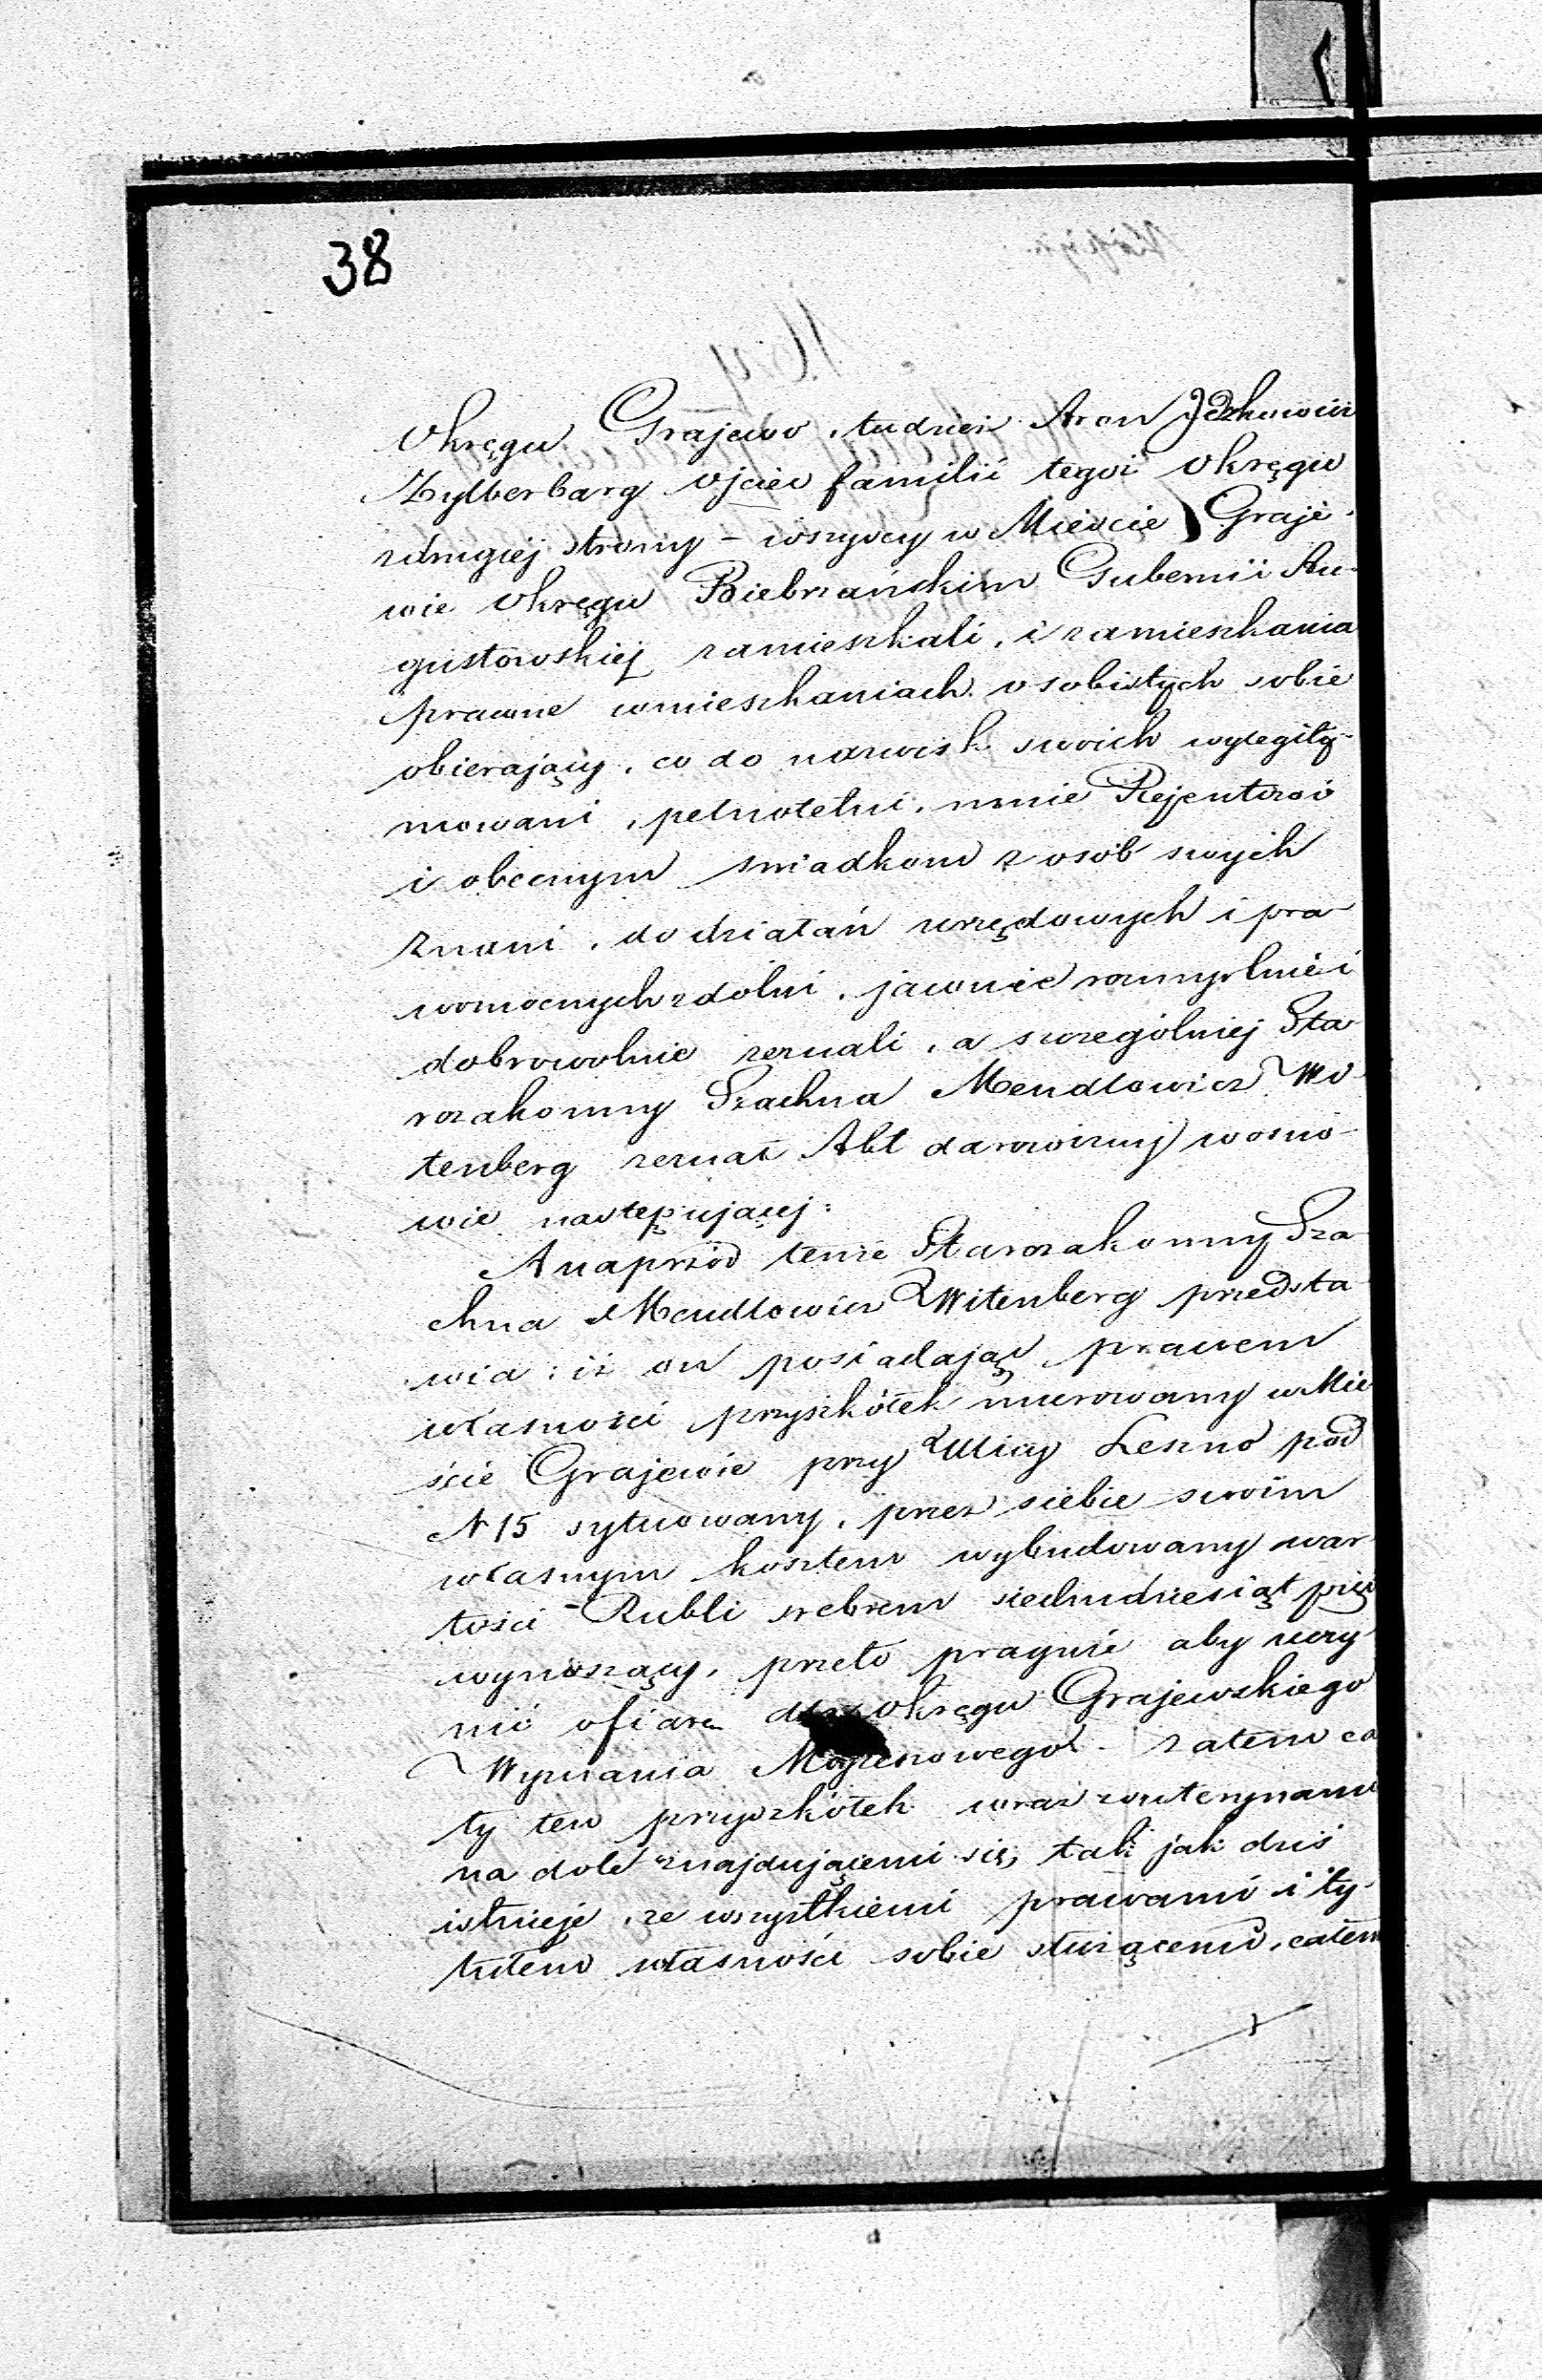 38
Okręgu Grajewo, tudzież Aron Jdzkowicz
Zylberbarg ojciec familii tegoż Okręgu
zdrugiéj strony – wszyscy w Mieście Graje-
wie Okręgu Biebrzańskim Gubernii Au-
gustowskiéj zamieszkali, i zamieszkania
prawne wmieszkaniach osobistych sobie
obierający, co do nazwisk swoich wylegity-
mowani, pełnoletni, mnie Rejentowi
i obecnym swiadkom z osób swych
znani, do działań urzędowych i pra-
womocnych zdolni, jawnie rozmyslnie i
dobrowolnie zeznali, a szczególniej Sta-
rozakonny Szachna Mendlowicz Wi-
tenberg zeznał Akt darowizny wosno-
wie następującej:
A naprzód tenże Starozakonny Sza-
chna Mendlowicz Witenberg przedsta-
wia: iż on posiadając prawem
własności przyszkółek murowany w Mie-
ście Grajewie przy Ulicy Leszno pod
N 15 sytuowany, przez siebie swoim
własnym kosztem wybudowany war-
tości Rubli srebrem siedmdziesiąt pięć
wynoszący, przeto pragnie aby uczy-
nić ofiarę okręgu Grajewskiego
Wyznania Mojżeszowego – zatem ca-
ły ten przyszkółek wraz zwuterynami
na dole znajdującemi się, tak jak dziś
istnieje, ze wszystkiemi prawami i ty-
tułem własności sobie służącemi, całem